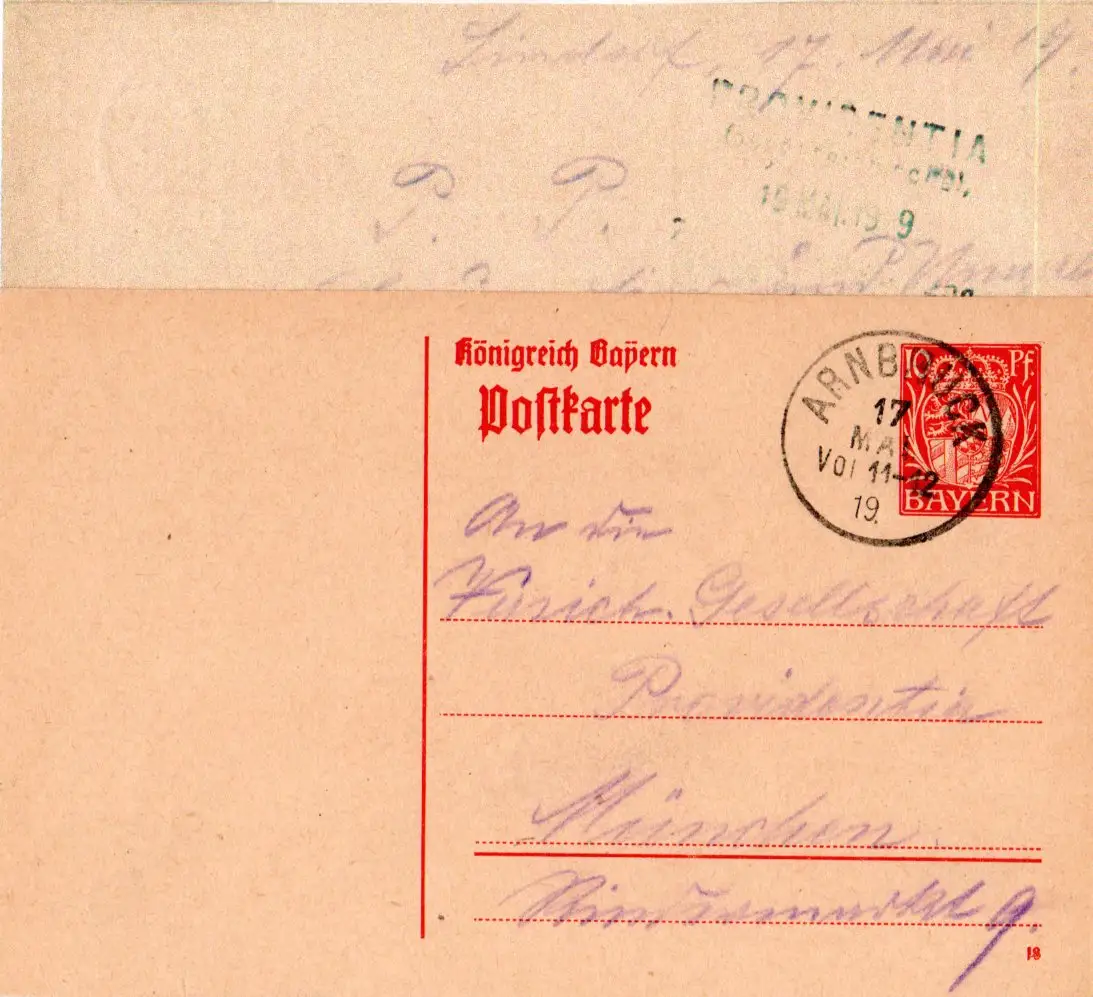 Lindorf, 17. Mai 19.
PROVIDENTIA
19 MAI. 19 9
P. P.
Königreich Bayern
Postkarte
10 Pf.
BAYERN
ARNBRUCK
17
MAI
VOR 11-12
19.
An die
Versich. Gesellschaft
Providentia
München.
Rindermarkt 9.
18